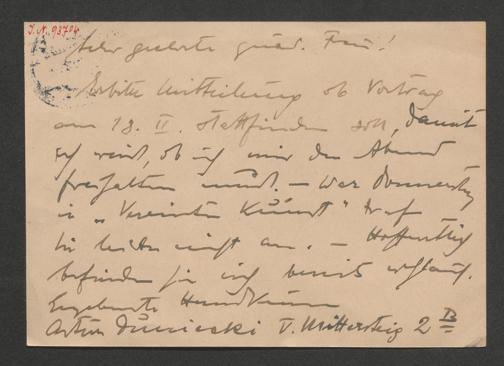 I.N. 93704
Sehr geehrte gnäd. Frau!
Erbitte Mitteilung ob Vortrag
am 13. II. stattfinden soll, damit
ich weiß, ob ich mir den Abend
freihalten muß. – War Donnerstag
in "Vereinte Kunst" traf
Sie leider nicht an. – Hoffentlich
befinden Sie sich bereits wohlauf.
Ergebenste Handküsse
Artur V. Mittersteig 2 B